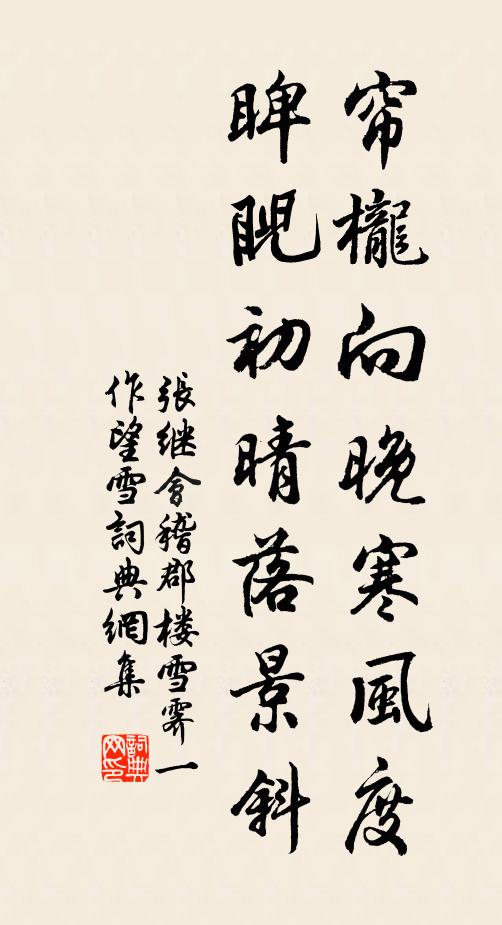 帘櫳向晚寒風度
睥睨初晴落景斜
張继會稽郡楼雪霽一
作望雪詞典網集
詞典
网印